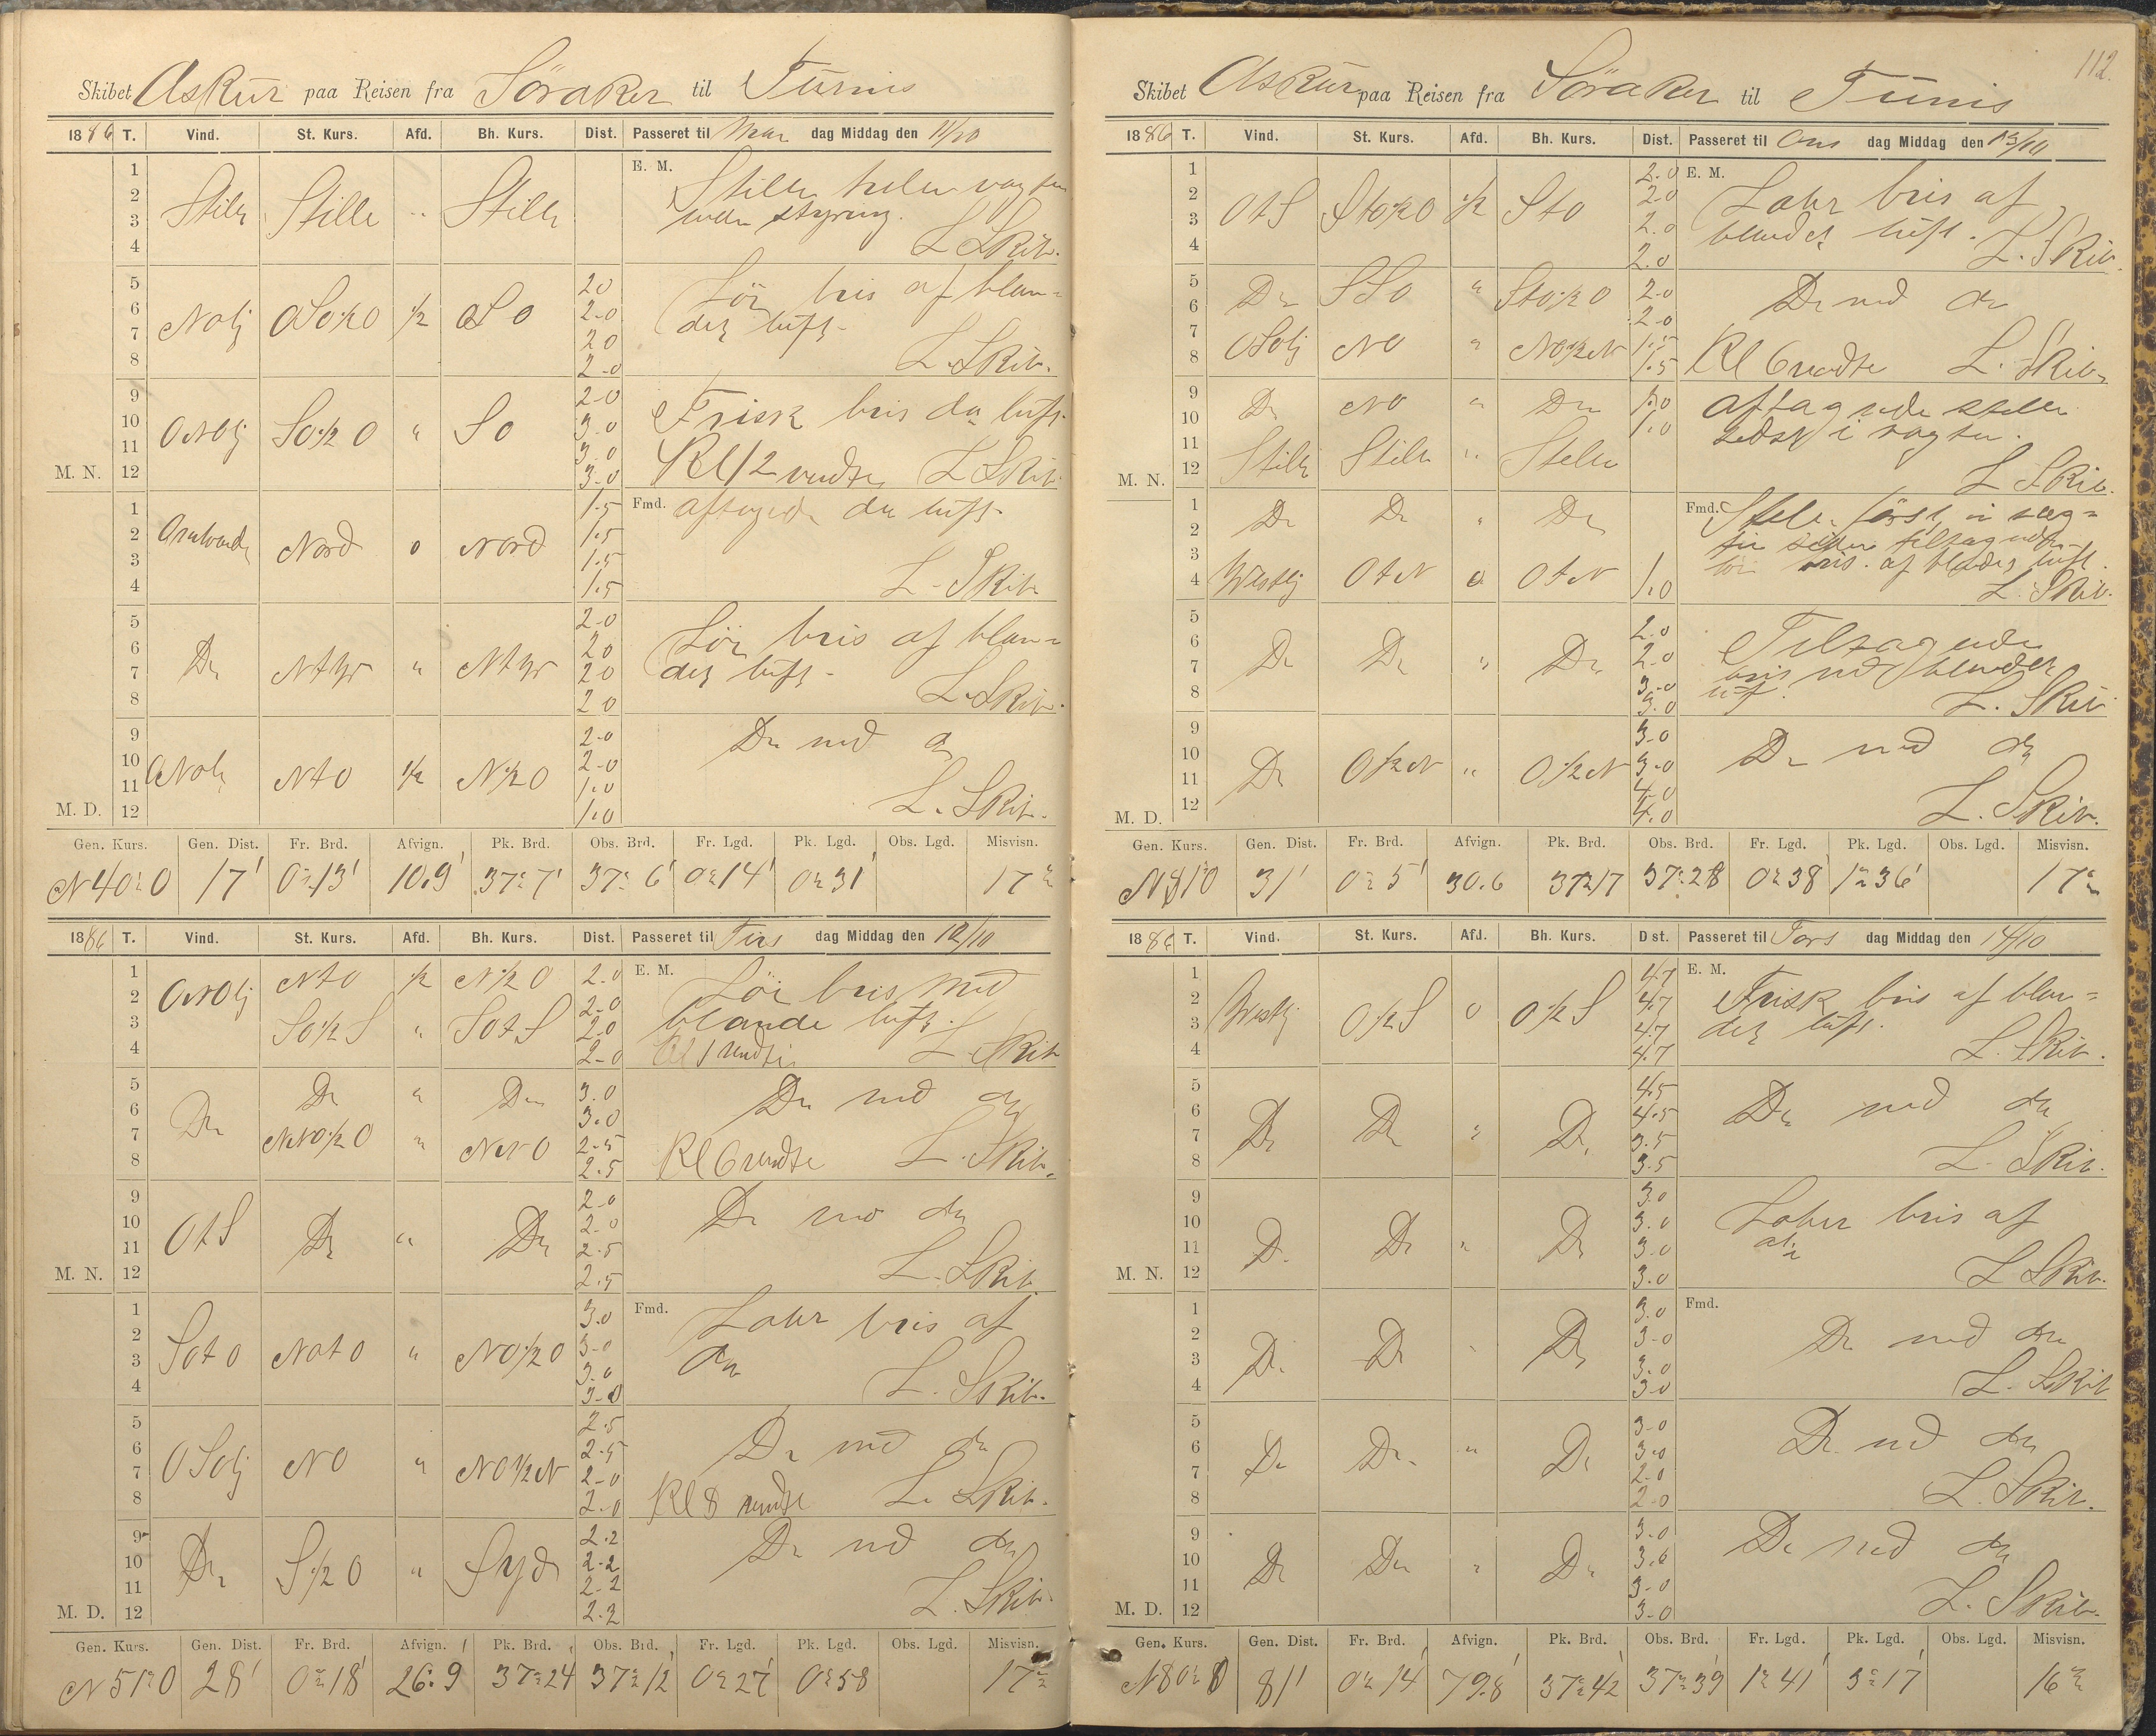 Skibet Askur paa Reisen fra Söraker til Tunis
1886 T. Vind. St. Kurs. Afd. Bh. Kurs. Dist. Passeret til Man dag Middag den 11/10
1 E. M.
2 Stille Stille " Stille Stille hele vagten
3 uden styring.
4 L. Skib.
5 20
6 Nolj OSO½O ½ OSO 2-0 Lör bris af blan=
7 20 det luft.
8 2-0 L. Skib.
9 2-0
10 ONOlj SO½O " SO 3.0 Frisk bris do luft.
11 3.0
M. N. 12 3-0 Kl 12 vendte L Skib.
1 1.5 Fmd. aftagende do luft.
2 Nord o Nord 1.5
3 1.5
4 1.5 L. Skib
5 2-0
6 Do NtW " NtW 20 Lör bris af blan=
7 20 det luft.
8 20 L. Skib.
9 2-0 Do med do
10 NtO ½ N½O 2-0
11 1.0
M. D. 12 1.0 L. Skib.
Gen. Kurs. Gen. Dist. Fr. Brd. Afvign. Pk. Brd. Obs. Brd. Fr. Lgd. Pk. Lgd. Obs. Lgd. Misvisn.
N40°O 17' 0°13' 10.9' 37°7' 37°6' 0°14' 0°31' 17°
1886 T. Vind. St. Kurs. Afd. Bh. Kurs. Dist. Passeret til Tirs dag Middag den 12/10
1 NtO ½ N½O 2.0 E. M. Lör bris med
2 ONOlj 2.0 blande luft.
3 SO½S " SOtS 2.0
4 2-0 Kl 1 vendte L. Skib
5 Do " Do 3.0 Do med do
6 Do 3.0
7 NNO½O " NNO 2-5
8 2.5 Kl 6 vendte L. Skib.
9 2-0
10 OtS Do " Do 2.0 Do med do
11 2.5
M. N. 12 2.5 L. Skib.
1 3.0 Fmd. Laber bris af
2 3-0 do
3 SOtO NOtO " NO½O 3.0
4 3-0 L. Skib.
5 2.5
6 OSOlj NO " NO½N 2.5 Do med do
7 2-0
8 2.0 Kl 8 vendte L. Skib.
9 2.2 Do med do
10 Do S½O " Syd 2-2
11 2-2
M. D. 12 2.2 L. Skib.
Gen. Kurs. Gen. Dist. Fr. Brd. Afvign. Pk. Brd. Obs. Brd. Fr. Lgd. Pk. Lgd. Obs. Lgd. Misvisn.
N51°O 28' 0°18' 26.9' 37°24' 37°12' 0°27' 0°58 17°
112.
Skibet Askur paa Reisen fra Söraker til Tunis
1886 T. Vind. St. Kurs. Afd. Bh. Kurs. Dist. Passeret til Ons dag Middag den 13/10
1 2.0 E. M.
2 OtS StO½O ½ StO 2.0 Laber bris af
3 2.0 blandet luft.
4 2.0 L. Skib.
5 Do SSO " StO½O 2.0 Do med do
6 2-0
7 OSOlj NO " NO½N 1.5
8 1.5 Kl 6 vendte L. Skib.
9 Do NO " Do 1.0 Aftagende stille
10 1.0 sidst i vagten.
11 Stille Stille " Stille
M. N. 12 L. Skib.
1 Do Do " Do Fmd. Stille först i vag=
2
3
4 Westlj OtN o OtN 1.0 L. Skib.
5 2.0
6 Do Do " Do 2.0 Tiltagende
7 3-0 bris med blandet
8 3.0 luft. L. Skib
9 3.0
10 Do O½N " O½N 3-0 Do med do
11 4.0
M. D. 12 4.0 L. Skib.
Gen. Kurs. Gen. Dist. Fr. Brd. Afvign. Pk. Brd. Obs. Brd. Fr. Lgd. Pk. Lgd. Obs. Lgd. Misvisn.
31' 0°5' 30.6 37°17 37°28 0°38' 1°36' 17°
1886 T. Vind. St. Kurs. Afd. Bh. Kurs. Dist. Passeret til Tors dag Middag den 14/10
1 4.7 E. M.
2 Westlj O½S o O½S 4.7 Frisk bris af blan=
3 4.7 det luft.
4 4.7 L. Skib.
5 4.5
6 Do Do " Do 4.5 Do med do
7 3.5
8 3.5 L. Skib.
9 3.0
10 Do Do " Do 3.0 Laber bris af
11 3.0 do
M. N. 12 3.0 L Skib.
1 3.0 Fmd.
2 Do Do " Do 3-0 Do med do
3 3.0
4 3.0 L. Skib
5 3-0
6 Do Do " Do 3.0 Do med do
7 2-0
8 2-0 L. Skib.
9 3-0
10 Do Do " Do 3.0 Do med do
11 3-0
M. D. 12 3-0 L. Skib.
Gen. Kurs. Gen. Dist. Fr. Brd. Afvign. Pk. Brd. Obs. Brd. Fr. Lgd. Pk. Lgd. Obs. Lgd. Misvisn.
N80°O 81' 0°14' 79.8' 37°42' 37°39' 1°41' 3°17' 16°